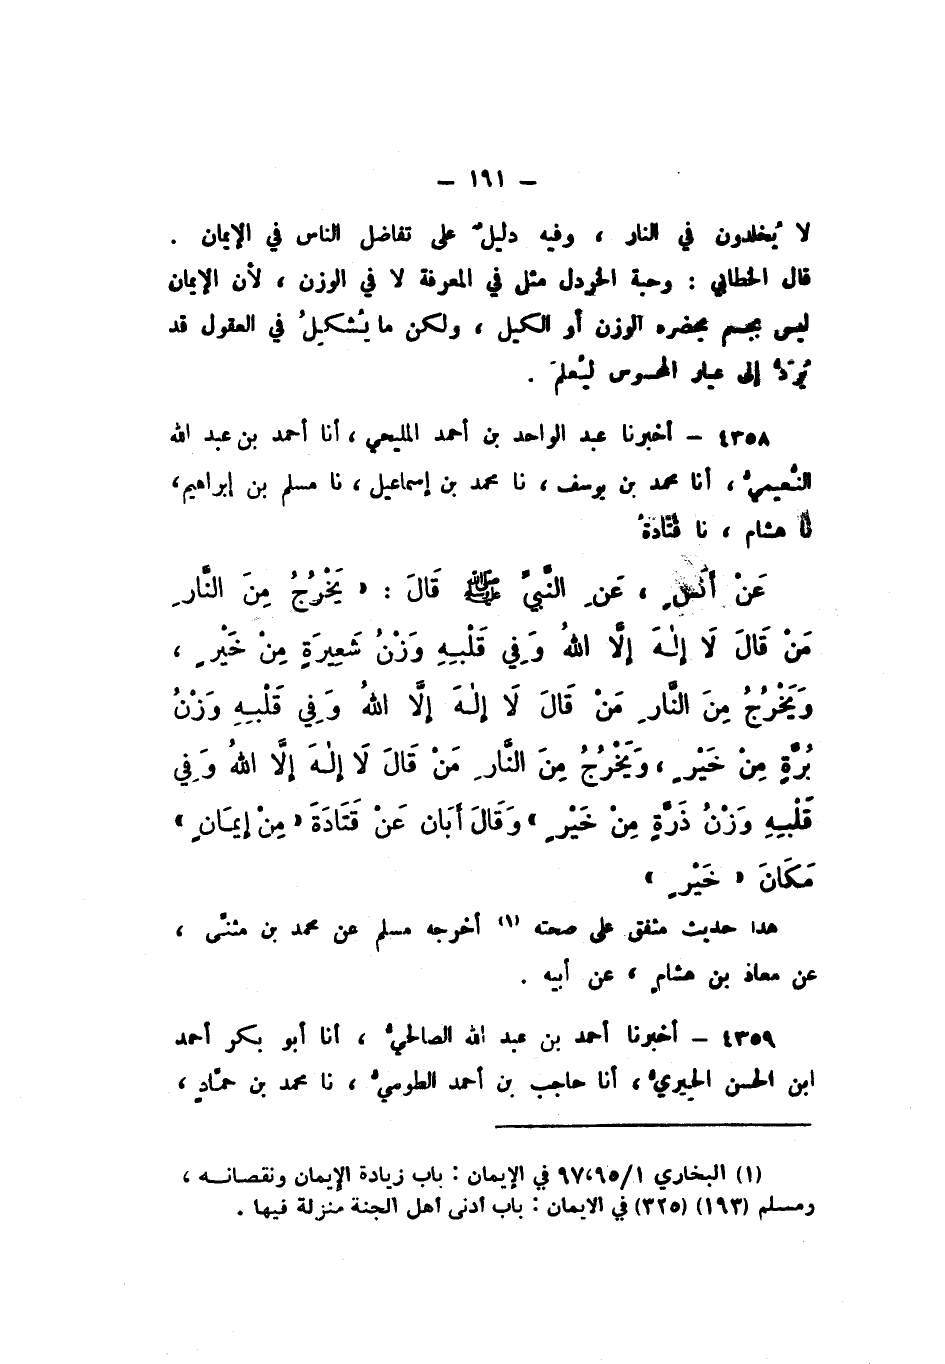 – ١٩١ –
لا يُخلدون في النار ، وفيه دليلٌ على تفاضل الناس في الإيمان .
قال الخطابي : وحبة الخردل مثل في المعرفة لا في الوزن ، لأن الإيمان
ليس بجسم يحضره الوزن أو الكيل ، ولكن ما يُشكِلُ في العقول قد
يُرَدُّ إلى عيار المحسوس ليُعلمَ .
٤٣٥٨ – أخبرنا عبد الواحد بن أحمد المليحي ، أنا أحمد بن عبد الله
النُّعيميُّ ، أنا محمد بن يوسف ، نا محمد بن إسماعيل ، نا مسلم بن إبراهيم ،
نا هشام ، نا قَتَادَةُ
عَنْ أَنَسٍ ، عَنِ النَّبِيِّ ﷺ قَالَ : « يَخْرُجُ مِنَ النَّارِ
مَنْ قَالَ لَا إِلٰهَ إِلَّا اللهُ وَفِي قَلْبِهِ وَزْنُ شَعِيرَةٍ مِنْ خَيْرٍ ،
وَيَخْرُجُ مِنَ النَّارِ مَنْ قَالَ لَا إِلٰهَ إِلَّا اللهُ وَفِي قَلْبِهِ وَزْنُ
بُرَّةٍ مِنْ خَيْرٍ ، وَيَخْرُجُ مِنَ النَّارِ مَنْ قَالَ لَا إِلٰهَ إِلَّا اللهُ وَفِي
قَلْبِهِ وَزْنُ ذَرَّةٍ مِنْ خَيْرٍ » وَقَالَ أَبَان عَنْ قَتَادَةَ « مِنْ إِيمَانٍ »
مَكَانَ « خَيْرٍ »
هذا حديث متفق على صحته (١) أخرجه مسلم عن محمد بن مثنَّى ،
عن معاذ بن هشامٍ ، عن أبيه .
٤٣٥٩ – أخبرنا أحمد بن عبد الله الصالحيُّ ، أنا أبو بكر أحمد
ابن الحسن الحِيريُّ ، أنا حاجب بن أحمد الطوسيُّ ، نا محمد بن حمَّادٍ ،
(١) البخاري ٩٧،٩٥/١ في الإيمان : باب زيادة الإيمان ونقصانـه ،
ومسلم (١٩٣) (٣٢٥) في الايمان : باب أدنى أهل الجنة منزلة فيها .